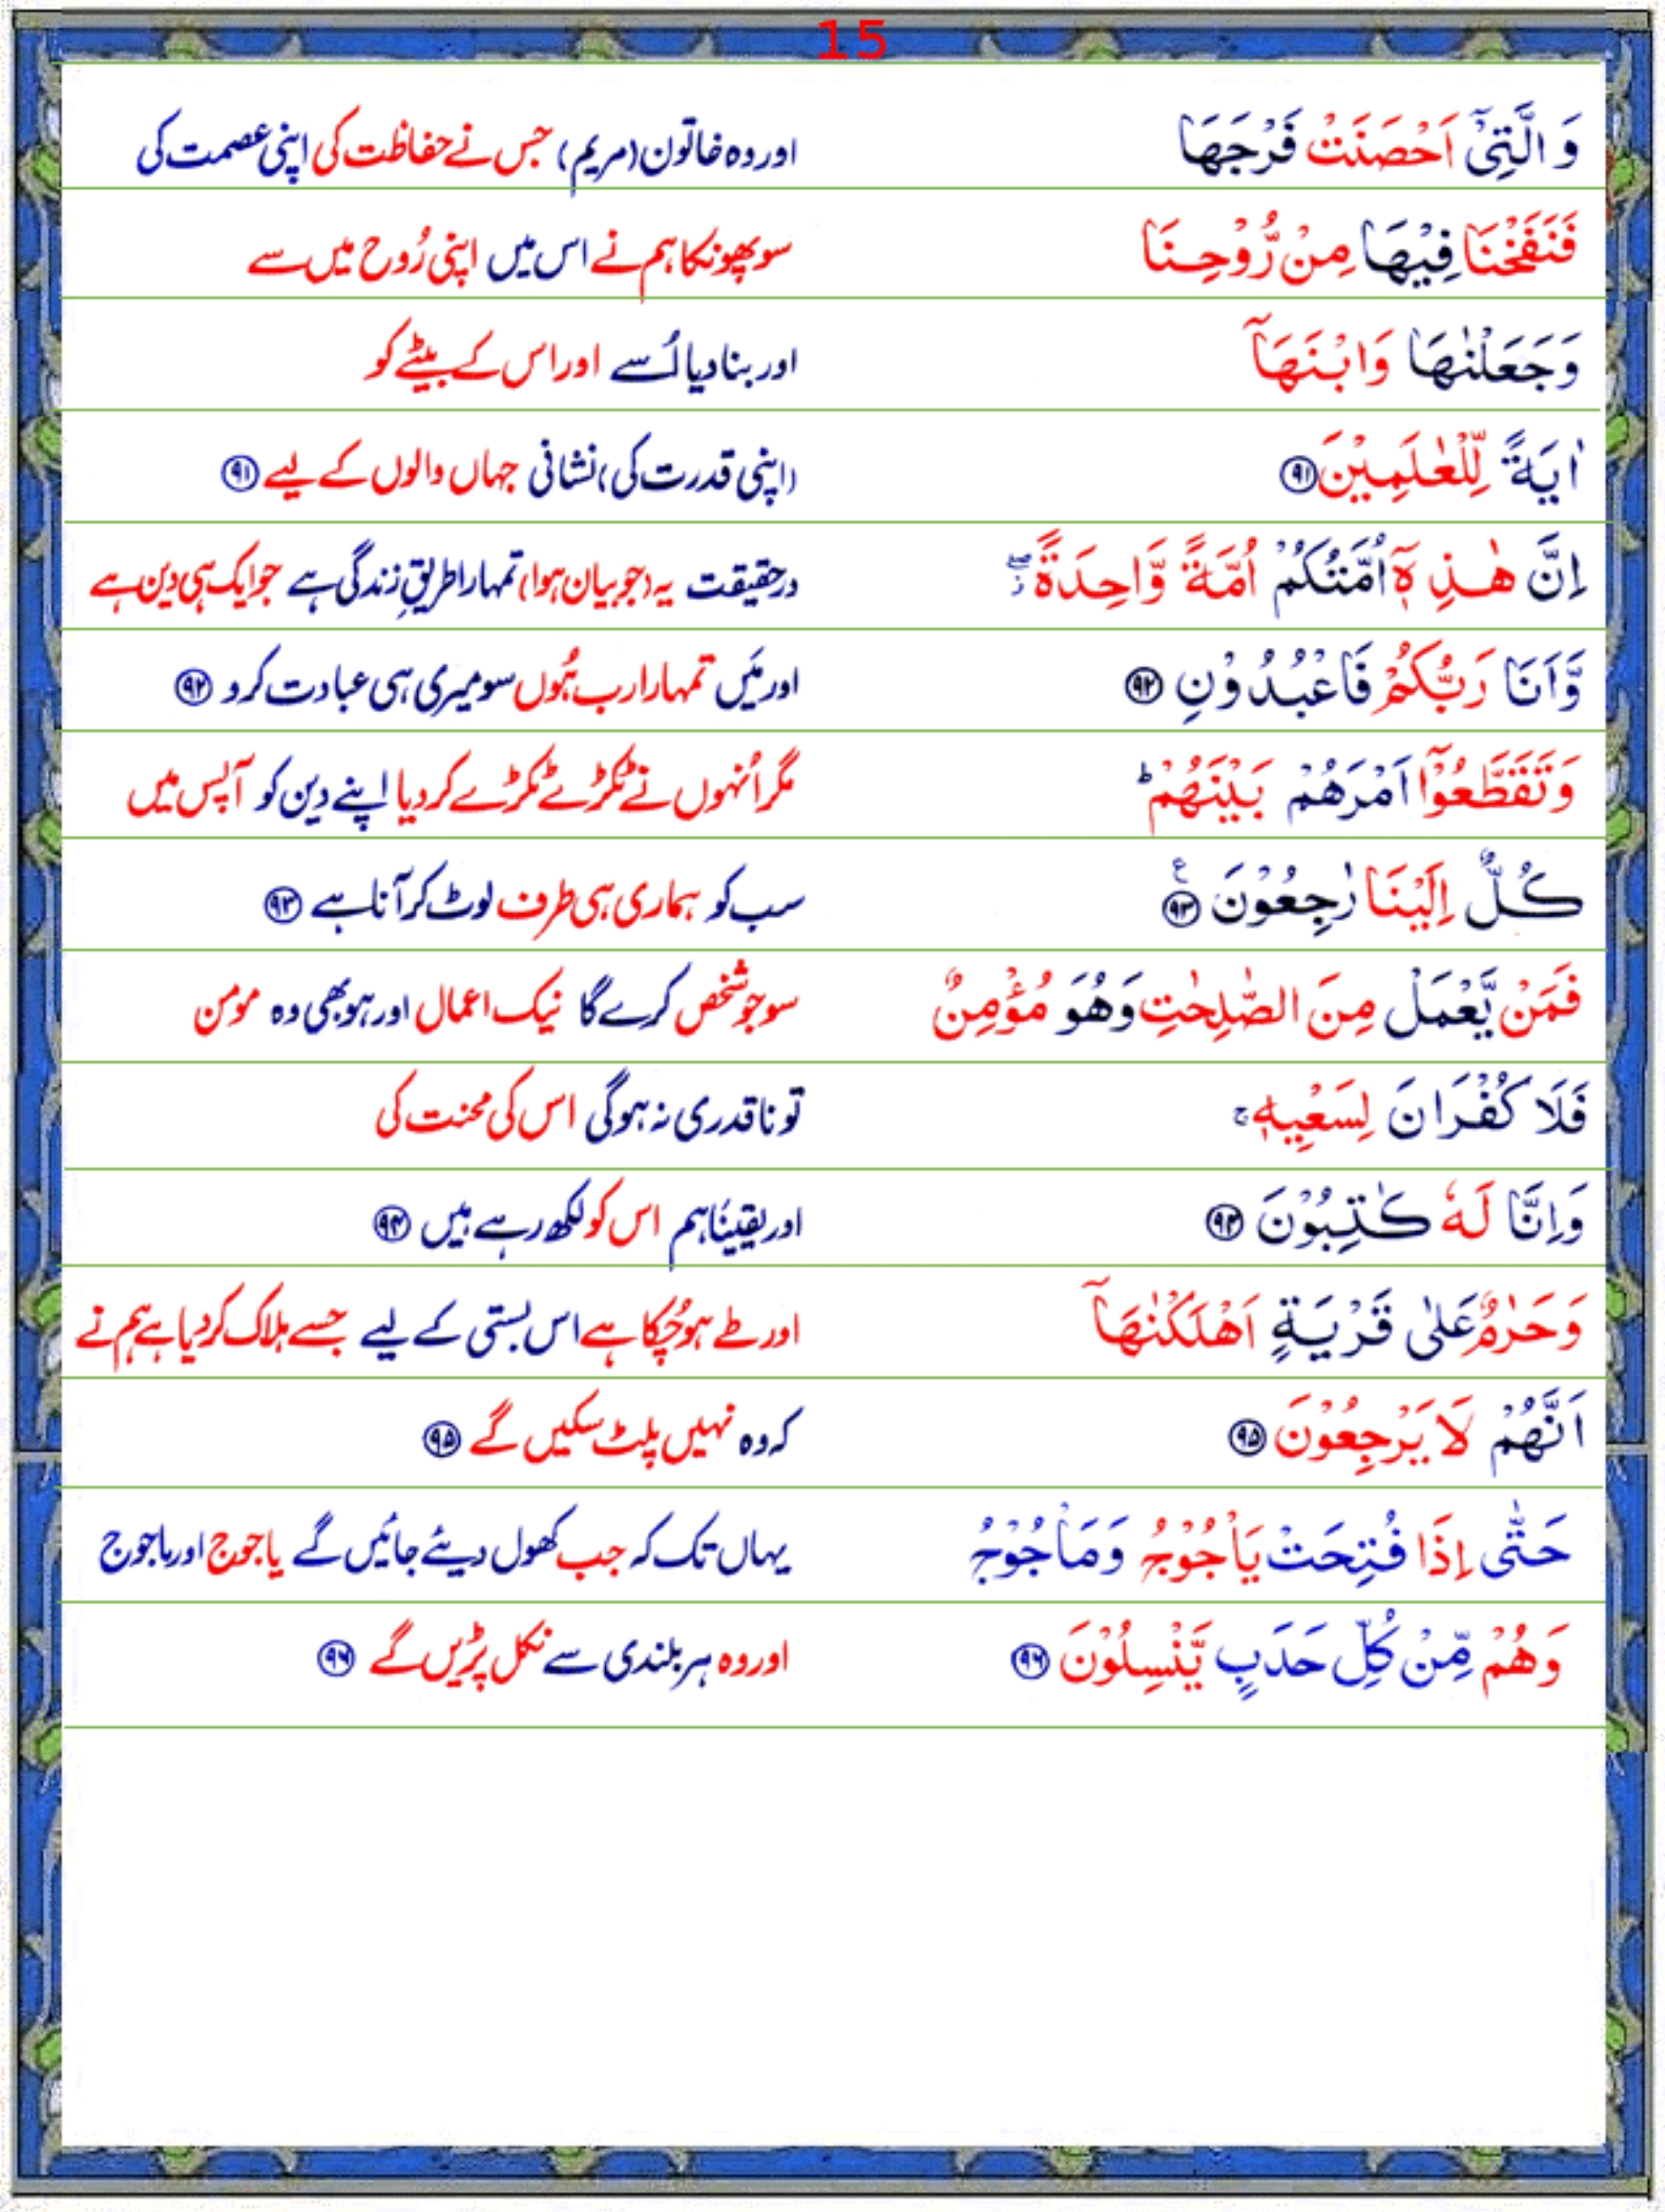 15
وَ الَّتِیْۤ اَحْصَنَتْ فَرْجَهَا اور وہ خاتون (مریم) جس نے حفاظت کی اپنی عصمت کی
فَنَفَخْنَا فِیْهَا مِنْ رُّوْحِنَا سو پھونکا ہم نے اس میں اپنی رُوح میں سے
وَجَعَلْنٰهَا وَابْنَهَاۤ اور بنا دیا اُسے اور اس کے بیٹے کو
اٰیَةً لِّلْعٰلَمِیْنَ ﴿۹۱﴾ (اپنی قدرت کی) نشانی جہاں والوں کے لیے ﴿۹۱﴾
اِنَّ هٰذِهٖۤ اُمَّتُكُمْ اُمَّةً وَّاحِدَةً ۖ٘ درحقیقت یہ (جو بیان ہوا) تمہارا طریقِ زندگی ہے جو ایک ہی دین ہے
وَّاَنَا رَبُّكُمْ فَاعْبُدُوْنِ ﴿۹۲﴾ اور مَیں تمہارا رب ہُوں سو میری ہی عبادت کرو ﴿۹۲﴾
وَتَقَطَّعُوْۤا اَمْرَهُمْ بَیْنَهُمْ ؕ مگر اُنہوں نے ٹکڑے ٹکڑے کر دیا اپنے دین کو آپس میں
كُلٌّ اِلَیْنَا رٰجِعُوْنَ ﴿۹۳﴾ ع سب کو ہماری ہی طرف لوٹ کر آنا ہے ﴿۹۳﴾
فَمَنْ یَّعْمَلْ مِنَ الصّٰلِحٰتِ وَهُوَ مُؤْمِنٌ سو جو شخص کرے گا نیک اعمال اور ہو بھی وہ مومن
فَلَا كُفْرَانَ لِسَعْیِهٖ ۚ تو ناقدری نہ ہوگی اس کی محنت کی
وَاِنَّا لَهٗ كٰتِبُوْنَ ﴿۹۴﴾ اور یقینًا ہم اس کو لکھ رہے ہیں ﴿۹۴﴾
وَحَرٰمٌ عَلٰی قَرْیَةٍ اَهْلَكْنٰهَاۤ اور طے ہو چُکا ہے اس بستی کے لیے جسے ہلاک کر دیا ہے ہم نے
اَنَّهُمْ لَا یَرْجِعُوْنَ ﴿۹۵﴾ کہ وہ نہیں پلٹ سکیں گے ﴿۹۵﴾
حَتّٰۤی اِذَا فُتِحَتْ یَاْجُوْجُ وَمَاْجُوْجُ یہاں تک کہ جب کھول دیئے جائیں گے یاجوج اور ماجوج
وَهُمْ مِّنْ كُلِّ حَدَبٍ یَّنْسِلُوْنَ ﴿۹۶﴾ اور وہ ہر بلندی سے نکل پڑیں گے ﴿۹۶﴾